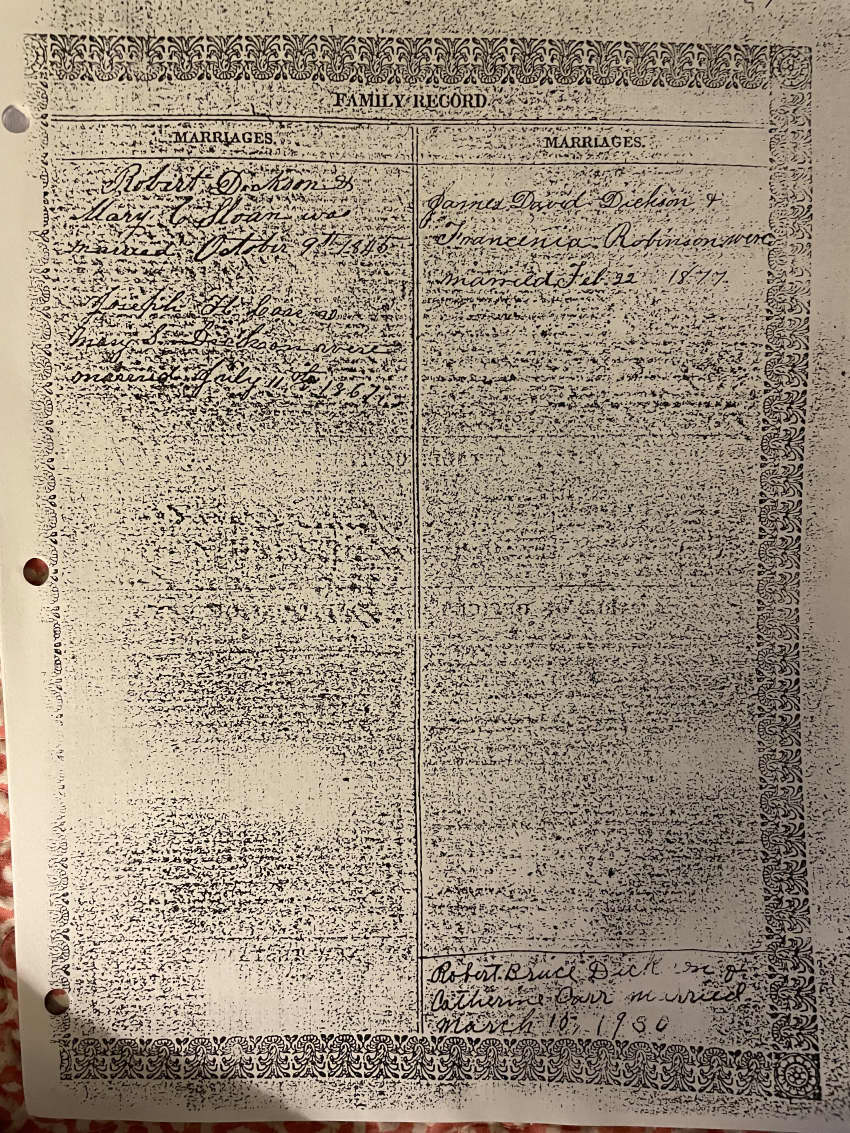 FAMILY RECORD
MARRIAGES.
Robert Dickson &
Mary C. Sloan was
married October 9th 1845
Joseph H.
Mary S. Dickson were
married July 11th 1867
MARRIAGES.
James David Dickson &
Francenia Robinson were
married Feb. 22 1877.
Robert Bruce Dick on &
Catherine Carr married
March 10, 1930